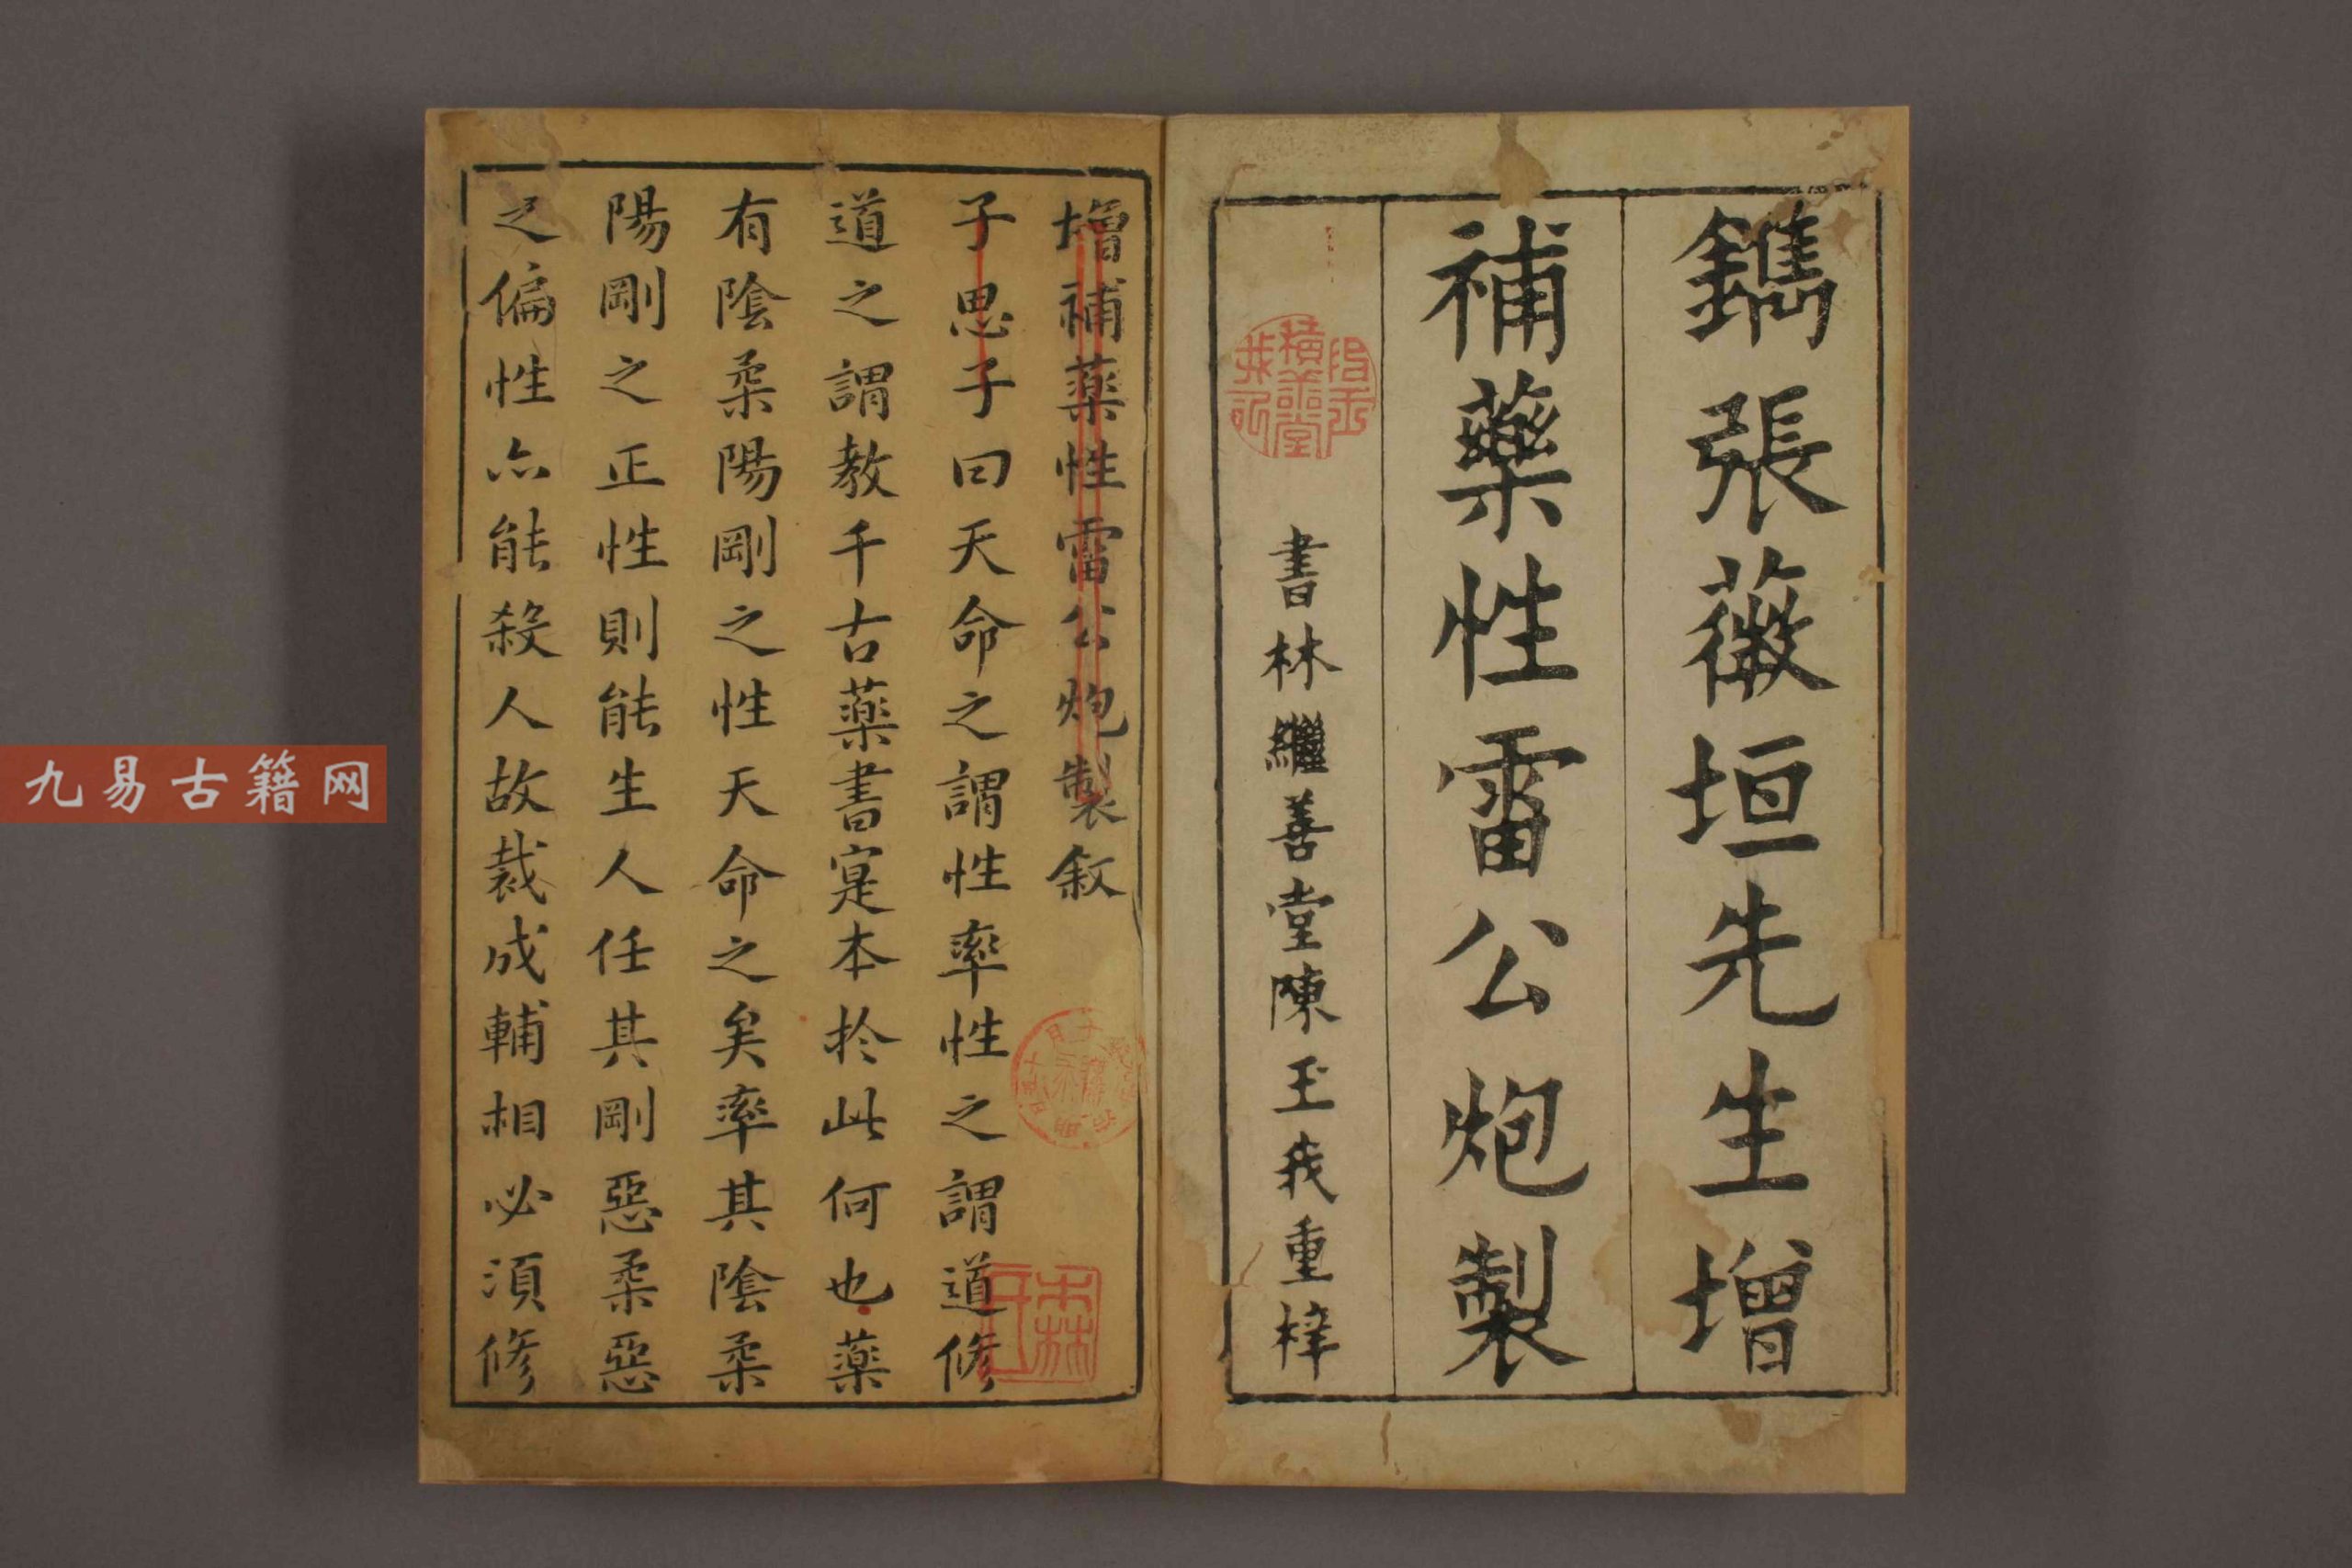 鐫張薇垣先生增
補藥性雷公炮製
書林繼善堂陳玉我重梓
積善堂
增補藥性雷公炮製叙
子思子曰天命之謂性率性之謂道修
道之謂教千古藥書寔本於此何也藥
有陰柔陽剛之性天命之矣率其陰柔
陽剛之正性則能生人任其剛惡柔惡
之偏性亦能殺人故裁成輔相必須修
九易古籍网